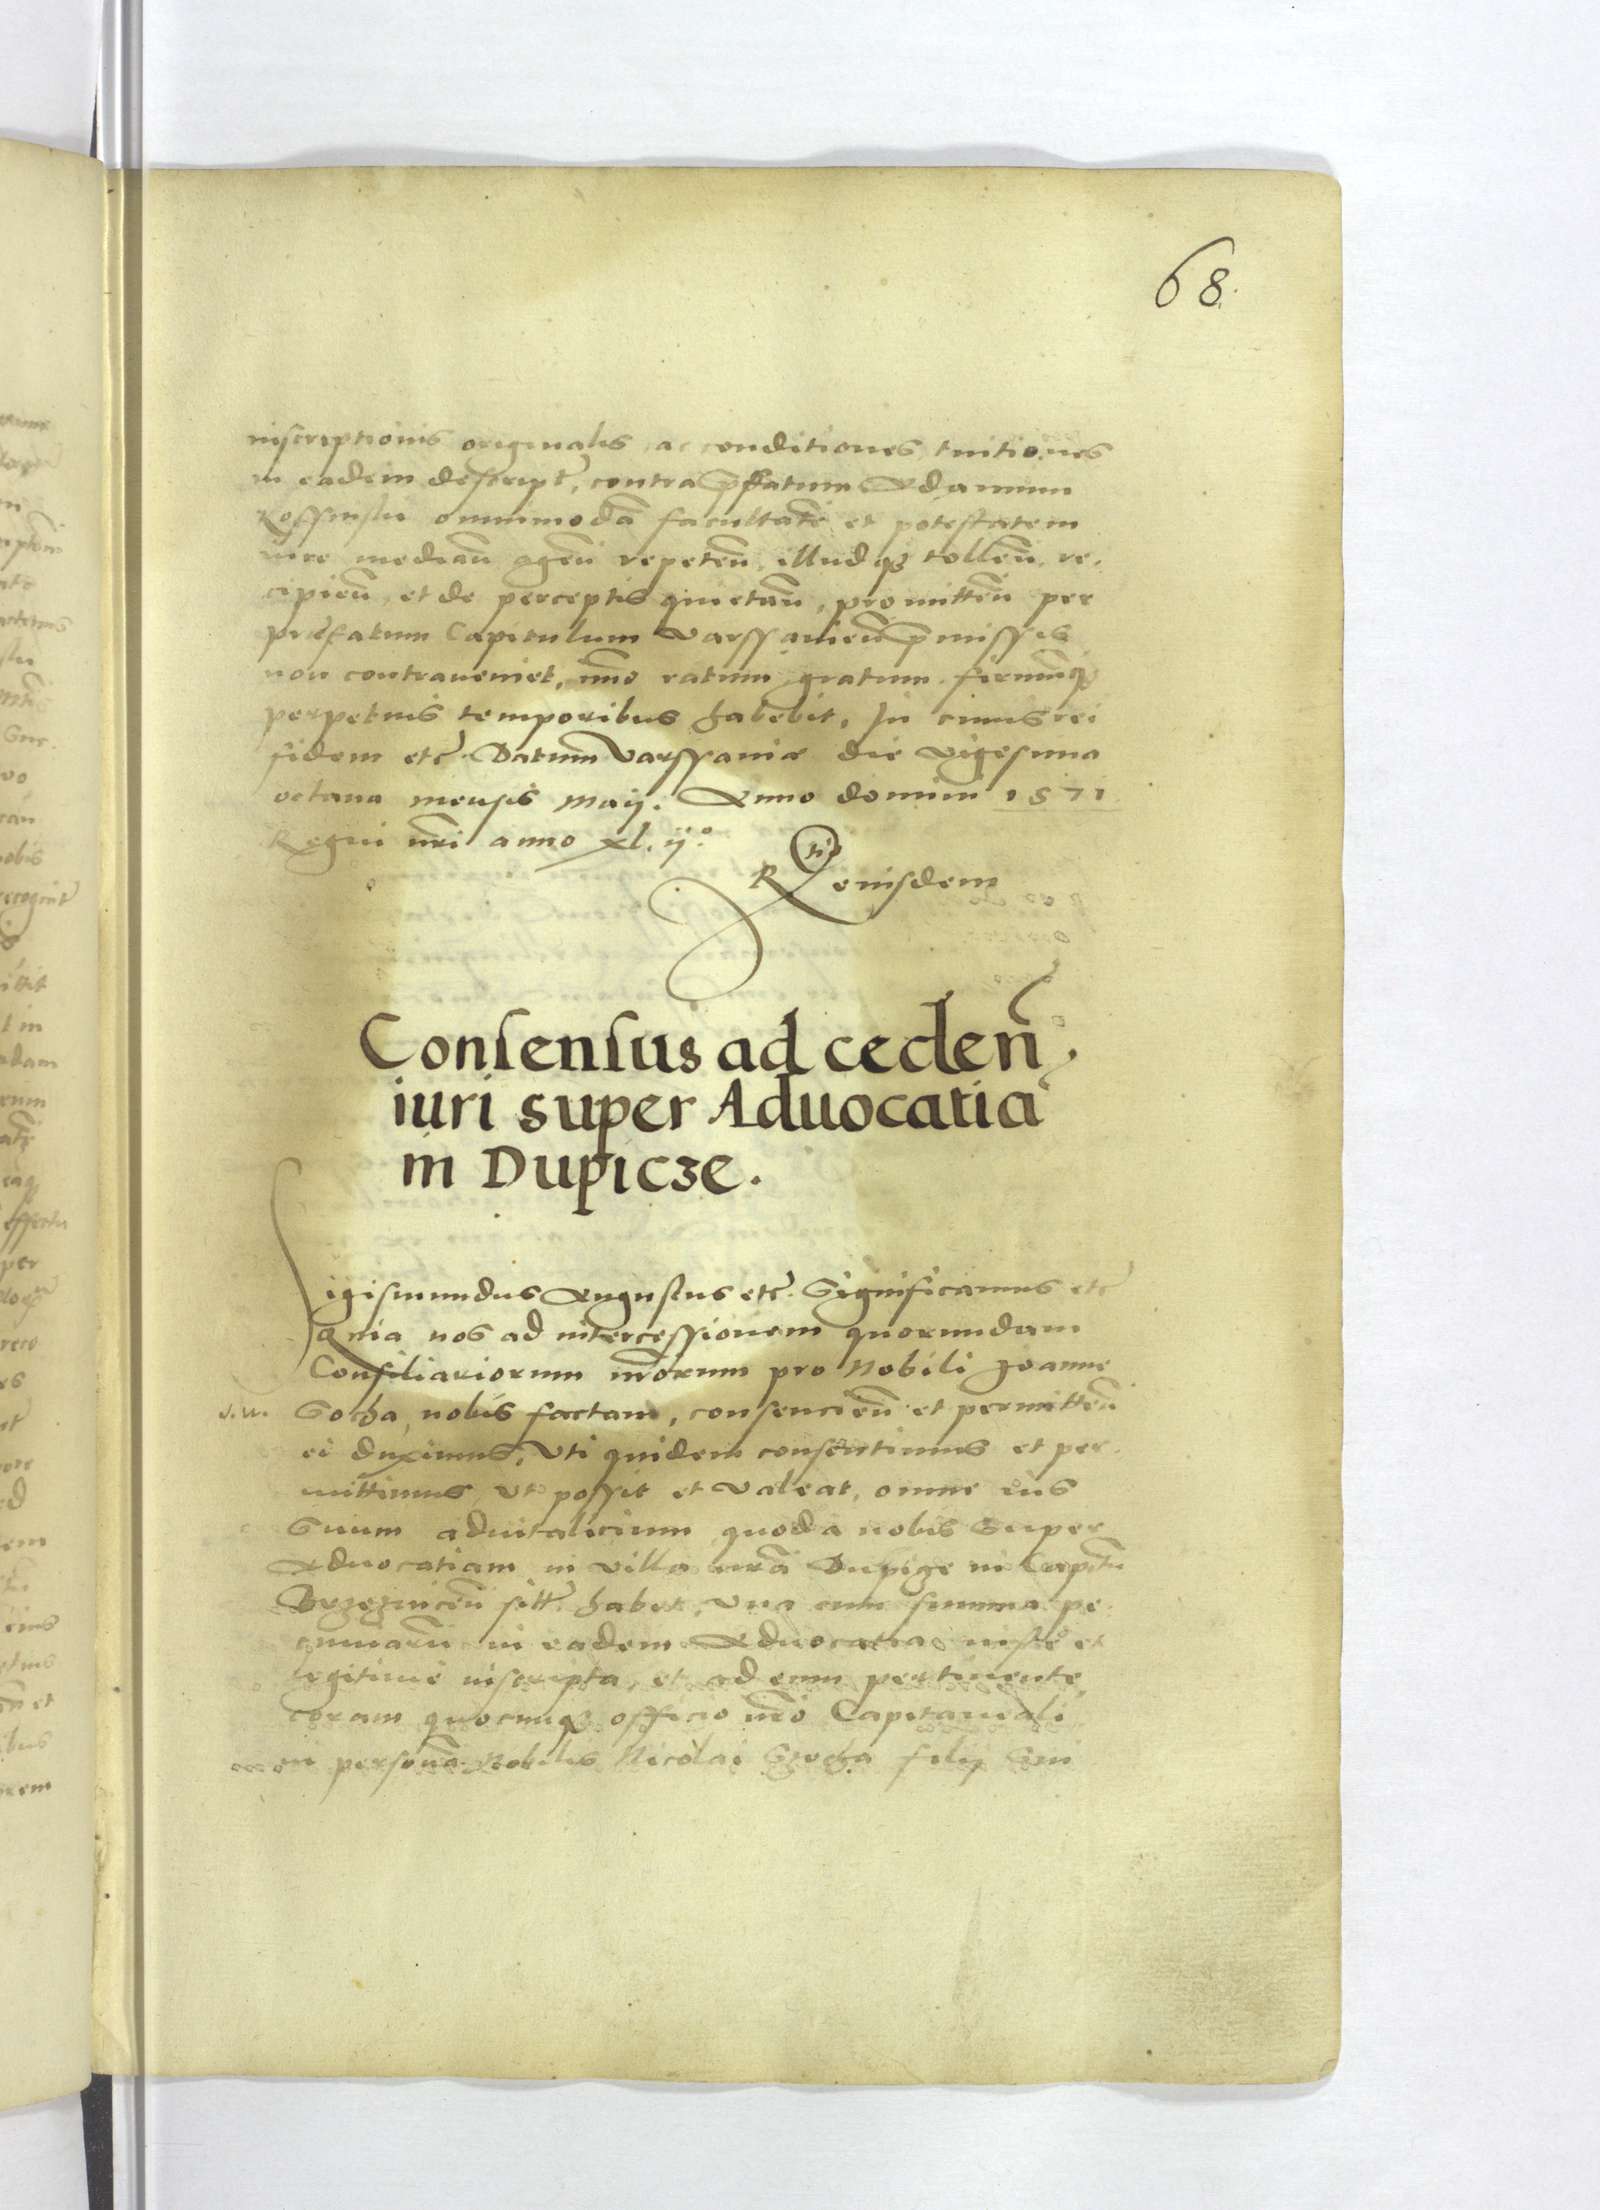 68.
inscriptionis originalis ac conditiones, tuitiones
in eadem descript, contra p̃ffatum Adamum
Kossinski omnimodã facultatẽ et potestatem
iure median̄ agen̄ repeten̄, illudq3 tollen̄, re-
cipien̄, et de perceptis quietan̄, promitten̄ per
præfatum Capitulum Varssavien̄ p̃missis
non contraveniet, im̃o ratum gratum firmumq3
perpetuis temporibus habebit, In cuius rei
fidem etc̃. Datum Varssaviæ die vigesima
octava mensis Maij. Anno domini 1571
Regni nr̃i anno xl.ij.°
R tio eiusdem
Consensus ad ceden̄,
iuri super Advocatiã
in Dupicze.
Sigismundus Augustus etc̃. Significamus etc̃
Quia nos ad intercessionem quorundam
Consiliariorum nr̃orum pro Nobili Joanne
Gocha nobis factam, consencien̄ et permitten̄
ei duximus, Uti quidem consentimus et per-
mittimus, ut possit et valeat, omne ius
Suum advitalicium quod a nobis Super
Advocatiam in villa nr̃a Dupige in Capitu
Brzeznicen̄ sitt. habet, una cum summa pe
cuniarū in eadem Advocatia iuste et
legitime inscripta, et ad eum pertinente,
coram quocunq3 officio nr̃o Capitaneali
in personã Nobilis Nicolai Gocha filij Sui